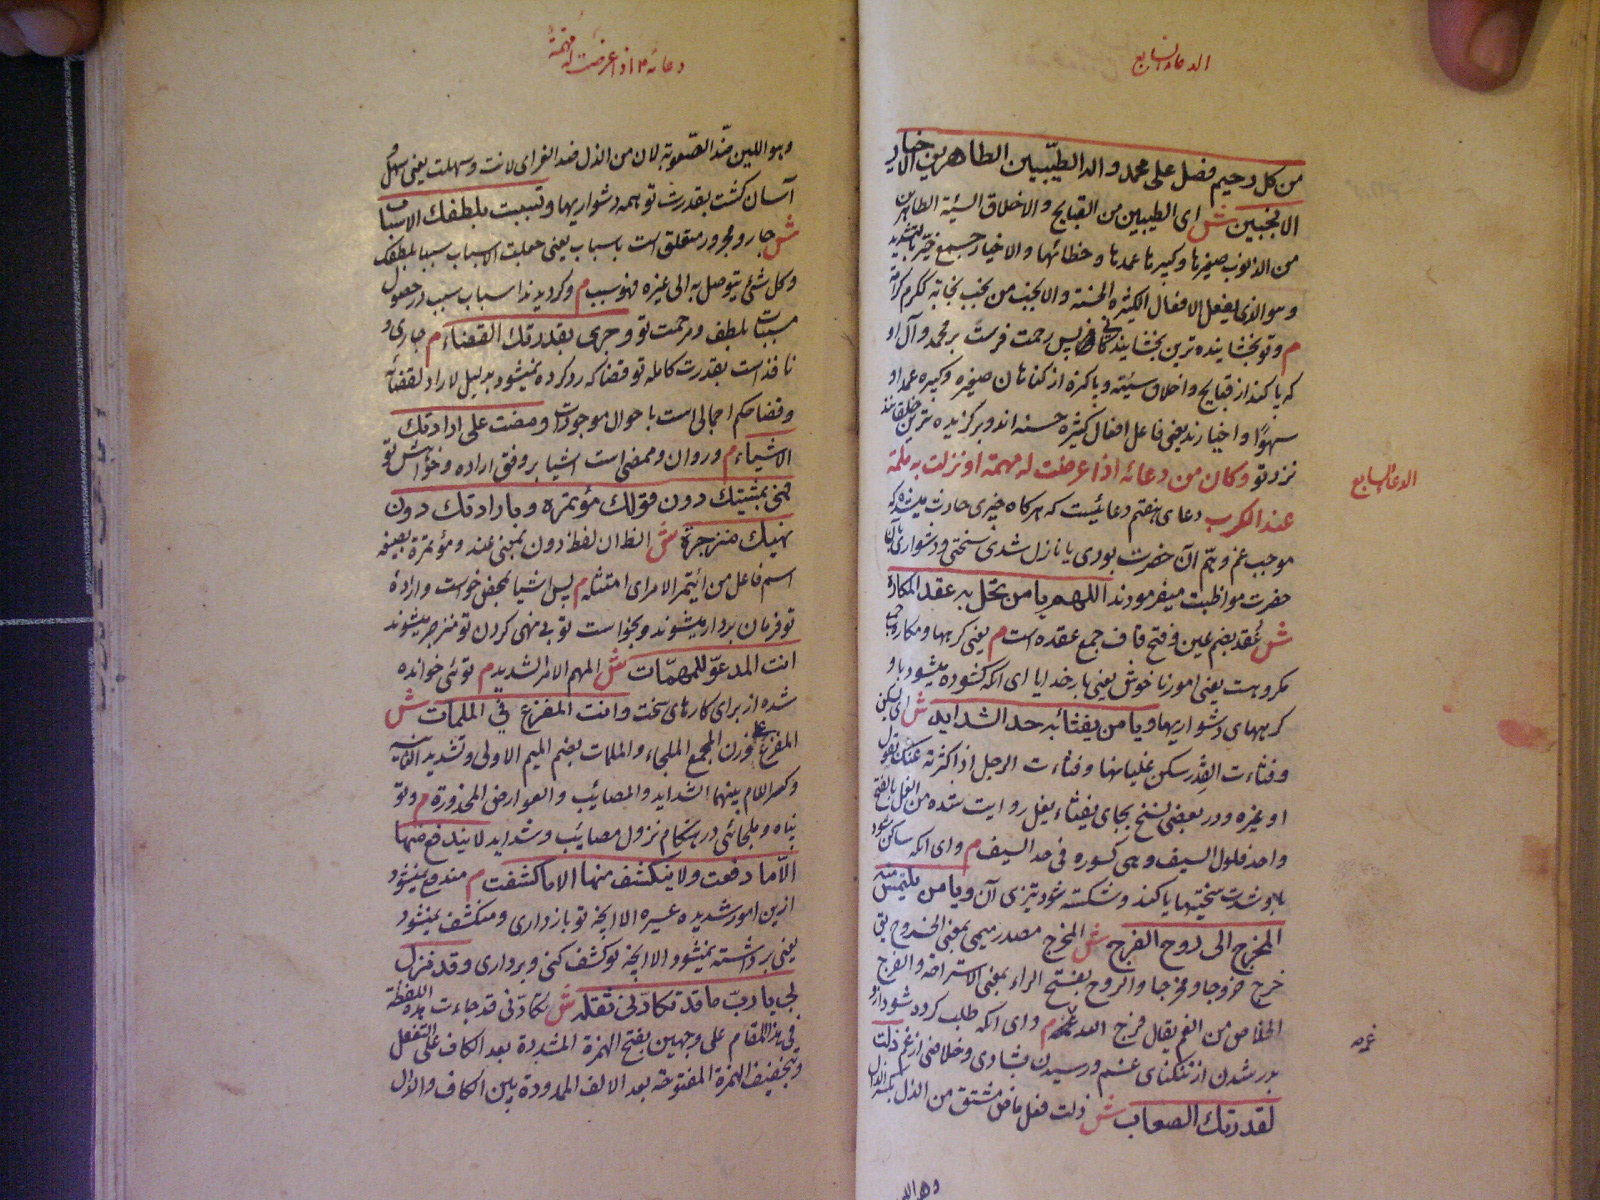 الدعاء السابع
من كل رحيم فصل على محمد واله الطيبين الطاهرين الاخيار
الانجبين ش اى الطيبين من القبايح والاخلاق السيئة الطاهرين
من الذنوب صغيرها وكبيرها عمدها وخطائها والاخيار جمع خيّر بالتشديد
وهو الذى يفعل الافعال الكثيرة الحسنة والانجب من نجب نجابة ككرم كرامة
م وتو بخشاينده ترين بخشايندگانى پس رحمت فرست بر محمد وآل او
كه پاكند از قبايح واخلاق سيئه وپاكيزه از كناهان صغيره وكبيره عمدا و
سهوًا واخيارند يعنى فاعل افعال كثيرهٔ حسنه اند وبركزيده ترين خلقانند
نزد تو وكان من دعائه اذا عرضت له مهمة او نزلت به ملمة
الدعاء السابع
عند الكرب دعاى هفتم دعائيست كه هركاه چيزى حادث ميشد كه
موجب غم وهمّ آن حضرت بودى يا نازل شدى سختى ودشوارى بآن
حضرت مواظبت ميفرمودند اللهم يا من تحل به عقد المكاره
ش عُقد بضم عين وفتح قاف جمع عقده است م يعنى كرهها ومكاره جمع
مكروهست يعنى امور ناخوش يعنى بار خدايا اى انكه كشوده ميشود باو
كرههاى دشواريها ويا من يفثأ به حد الشدايد ش اى يسكن
وفثاءت القِدر سكن غليانها وفثاءت الرجل اذا كثرته عنك بقول
او غيره ودر بعضى نسخ بجاى يفثاء يفل روايت شده من الفل بالفتح
واحد فلول السيف وهى كسوره فى حد السيف م واى انكه ساكن شود
باو شدت سختيها يا كند وشكسته شود تيزى آن ويا من يلتمس منه
المخرج الى روح الفرج ش المخرج مصدر ميمى بمعنى الخروج يق
خرج خروجا ومخرجا والروح بفتح الراء بمعنى الاستراحة والفرج
الخلاص من الغم يقال فرج الله غمه م واى انكه طلب كرده شود ازو
غمه
بدر شدن از تنكناى غم ورسيدن بشادى وخلاصى از غم ذلت
لقدرتك الصعاب ش ذلت فعل ماض مشتق من الذل بكسر الذال
وهو اللين
دعائه م اذا عرضت له مهمة
وهو اللين ضد الصعوبة لان من الذل ضد العز اى لانت وسهلت يعنى سهل و
آسان كشت بقدرت تو همه دشواريها وتسببت بلطفك الاسباب
ش جار ومجرور متعلق است باسباب يعنى جعلت الاسباب سببا بلطفك
وكل شئ يتوصل به الى غيره فهو سبب م وكرديدند اسباب سبب در حصول
مسببات بلطف ومرحمت تو وجرى بقدرتك القضاء م جارى و
نافذ است بقدرت كامله تو قضا كه رد كرده نميشود بدليل لا راد لقضائه
وقضا حكم اجمالى است باحوال موجودات ومضت على ارادتك
الاشياء م وروان وممضى است اشيا بر وفق اراده وخواهش تو
فهى بمشيتك دون قولك مؤتمرة وبارادتك دون
نهيك منزجرة ش الظ ان لفظ دون بمعنى عند ومؤتمرة بصيغه
اسم فاعل من ائتمر الامر اى امتثله م پس اشيا بمحض خواست واراده
تو فرمان بردار ميشوند وبخواست تو بى نهى كردن تو منزجر ميشوند
انت المدعوّ للمهمّات ش المهم الامر الشديد م توئى خوانده
شده از براى كارهاى سخت وانت المفزع فى الملمات ش
المفزع على وزن المجمع الملجاء والملمات بضم الميم الاولى وتشديد الثانية
وكسر اللام بينهما الشدايد والمصائب والعوارض المحذورة م وتو
پناه وملجائى در هنكام نزول مصايب وشدايد لا يندفع منها
الّا ما دفعت ولا ينكشف منها الا ما كشفت م مندفع نميشود
ازين امور شديده عسيره الا انچه تو باز دارى ومنكشف نميشود
يعنى برداشته نميشود الا انچه تو كشف كنى وبردارى وقد نزل
بى يا ربّ ما قد تكأدنى ثقله ش تكأدنى قد جاءت هذه اللفظة
فى هذا المقام على وجهين بفتح الهمزة المشددة بعد الكاف على التفعل
وبتخفيف الهمزة المفتوحة بعد الالف الممدودة بين الكاف والدال